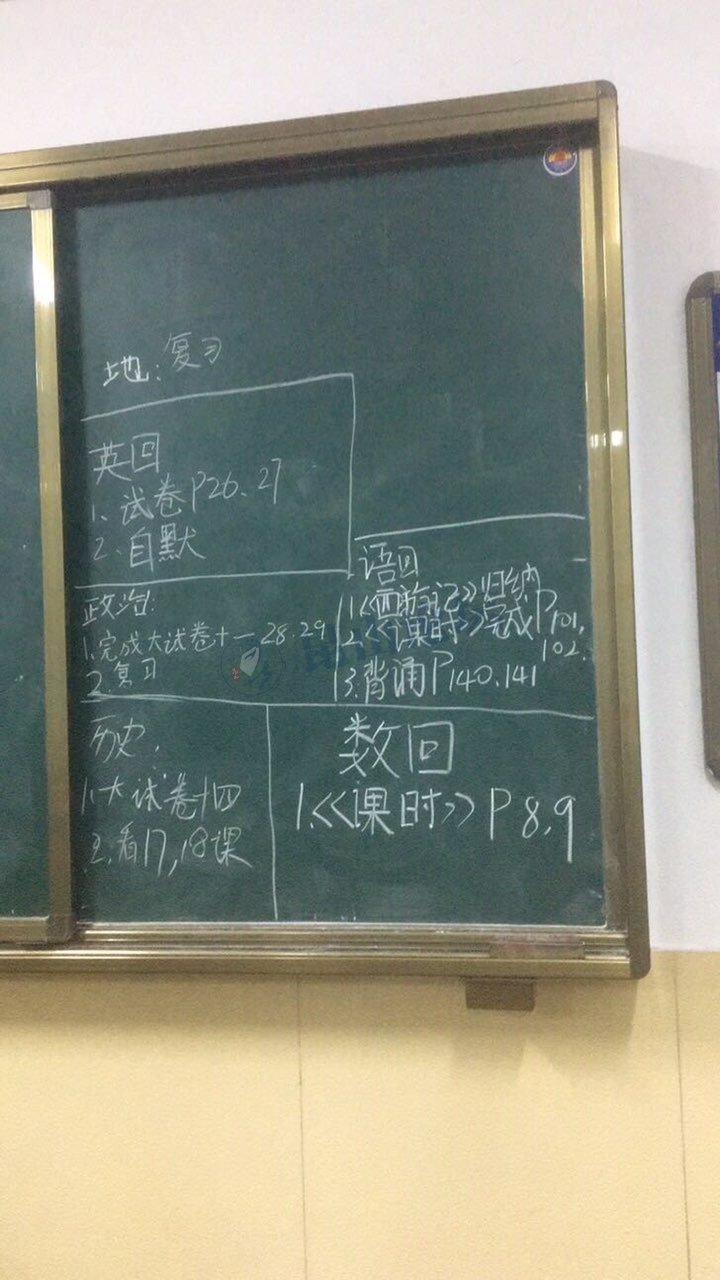 地：复习
英回
1、试卷P26、27
2、自默
政治：
1.完成大试卷十一 28.29
2.复习
语回
1.《西游记》归纳
2.《课时》完成P101,
102.
3.背诵P140.141
历史.
1.大试卷十四
2.看17,18课
数回
1.《课时》P8.9